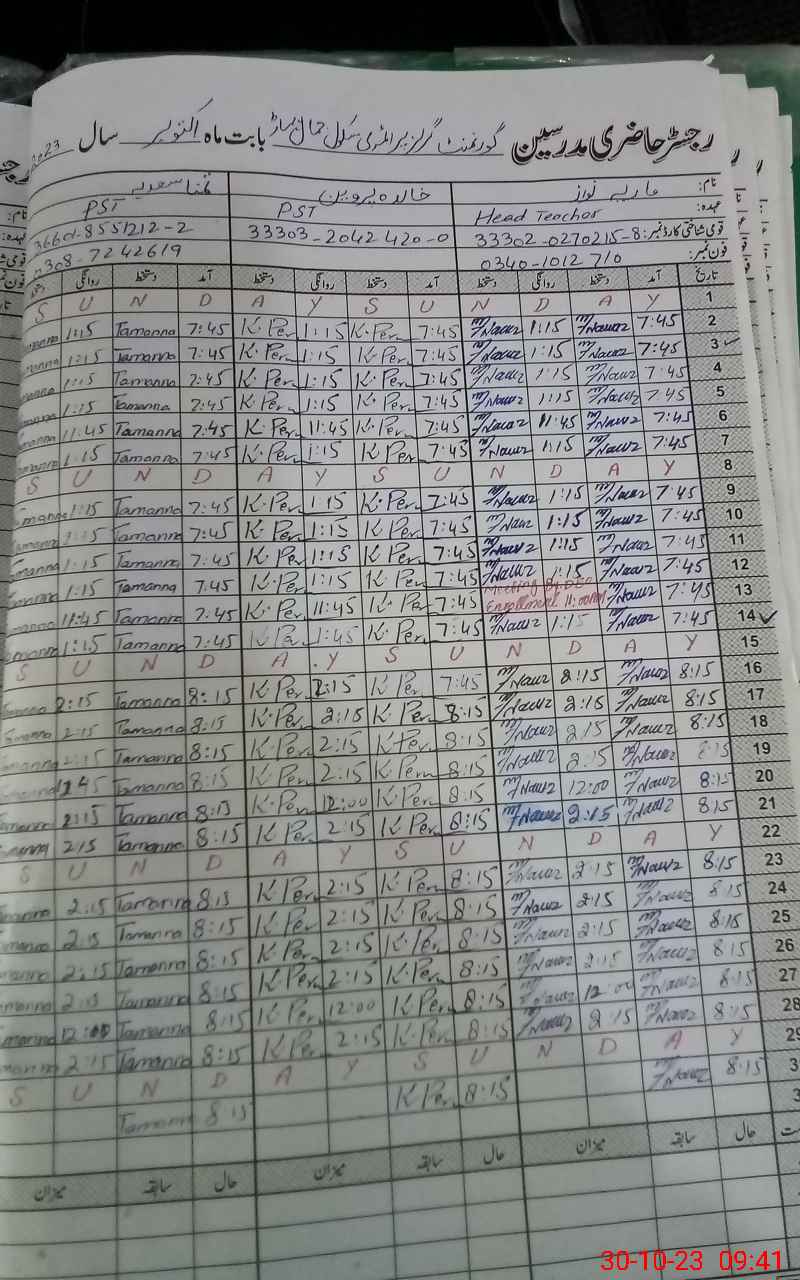 رجسٹر حاضری مدرسین گورنمنٹ گرلز پرائمری سکول جمال پہاڑ بابت ماہ اکتوبر سال 2023
نام: ماریہ نواز خالدہ پروین تمنا سعدیہ
عہدہ: Head Teacher PST PST
قومی شناختی کارڈ نمبر: 33302-0270215-8 33303-2042420-0 3660-8551212-2
فون نمبر: 0340-1012710 0308-7242619
تاریخ آمد دستخط روانگی دستخط آمد دستخط روانگی دستخط آمد دستخط روانگی دستخط
1 S U N D A Y S U N D A Y
2 7:45 M Nawaz 1:15 M Nawaz 7:45 K.Per 1:15 K.Per 7:45 Tamanna 1:15
3 7:45 M Nawaz 1:15 M Nawaz 7:45 K.Per 1:15 K.Per 7:45 Tamanna 1:15
4 7:45 M Nawaz 1:15 M Nawaz 7:45 K.Per 1:15 K.Per 7:45 Tamanna 1:15
5 7:45 M Nawaz 1:15 M Nawaz 7:45 K.Per 1:15 K.Per 7:45 Tamanna 1:15
6 7:45 M Nawaz 11:45 M Nawaz 7:45 K.Per 11:45 K.Per 7:45 Tamanna 11:45
7 7:45 M Nawaz 1:15 M Nawaz 7:45 K Per 1:15 K.Per 7:45 Tamanna 1:15
8 S U N D A Y S U N D A Y
9 7:45 M Nawaz 1:15 M Nawaz 7:45 K Per 1:15 K.Per 7:45 Tamanna 1:15
10 7:45 M Nawaz 1:15 M Nawaz 7:45 K Per 1:15 K.Per 7:45 Tamanna 1:15
11 7:45 M Nawaz 1:15 M Nawaz 7:45 K Per 1:15 K.Per 7:45 Tamanna 1:15
12 7:45 M Nawaz 1:15 M Nawaz 7:45 K Per 1:15 K.Per 7:45 Tamanna 1:15
13 7:45 M Nawaz Meeting Enrollment 11:00AM 7:45 K Per 11:45 K.Per 7:45 Tamanna 11:45
14 7:45 M Nawaz 1:15 M Nawaz 7:45 K Per 1:45 K Per 7:45 Tamanna 1:15
15 S U N D A Y S U N D A Y
16 8:15 M Nawaz 2:15 M Nawaz 7:45 K Per 2:15 K Per 8:15 Tamanna 2:15
17 8:15 M Nawaz 2:15 M Nawaz 8:15 K Per 2:15 K Per 8:15 Tamanna 2:15
18 8:15 M Nawaz 2:15 M Nawaz 8:15 K Per 2:15 K Per 8:15 Tamanna 2:15
19 8:15 M Nawaz 2:15 M Nawaz 8:15 K Per 2:15 K Per 8:15 Tamanna
20 8:15 M Nawaz 12:00 M Nawaz 8:15 K Per 12:00 K Per 8:15 Tamanna
21 8:15 M Nawaz 2:15 M Nawaz 8:15 K Per 2:15 K Per 8:15 Tamanna 2:15
22 Y A D N U S Y A D N U S
23 8:15 M Nawaz 2:15 M Nawaz 8:15 K Per 2:15 K Per 8:15 Tamanna 2:15
24 8:15 M Nawaz 2:15 M Nawaz 8:15 K Per 2:15 K Per 8:15 Tamanna 2:15
25 8:15 M Nawaz 2:15 M Nawaz 8:15 K Per 2:15 K Per 8:15 Tamanna 2:15
26 8:15 M Nawaz 2:15 M Nawaz 8:15 K Per 2:15 K Per 8:15 Tamanna 2:15
27 8:15 M Nawaz 12:00 M Nawaz 8:15 K Per 12:00 K Per 8:15 Tamanna 12:00
28 8:15 M Nawaz 2:15 M Nawaz 8:15 K Per 2:15 K Per 8:15 Tamanna 2:15
29 S U N D A Y S U N D A Y
3 8:15 M Nawaz 8:15 K Per 8:15 Tamanna
3
حال سابقہ میزان حال سابقہ میزان حال سابقہ میزان
30-10-23 09:41